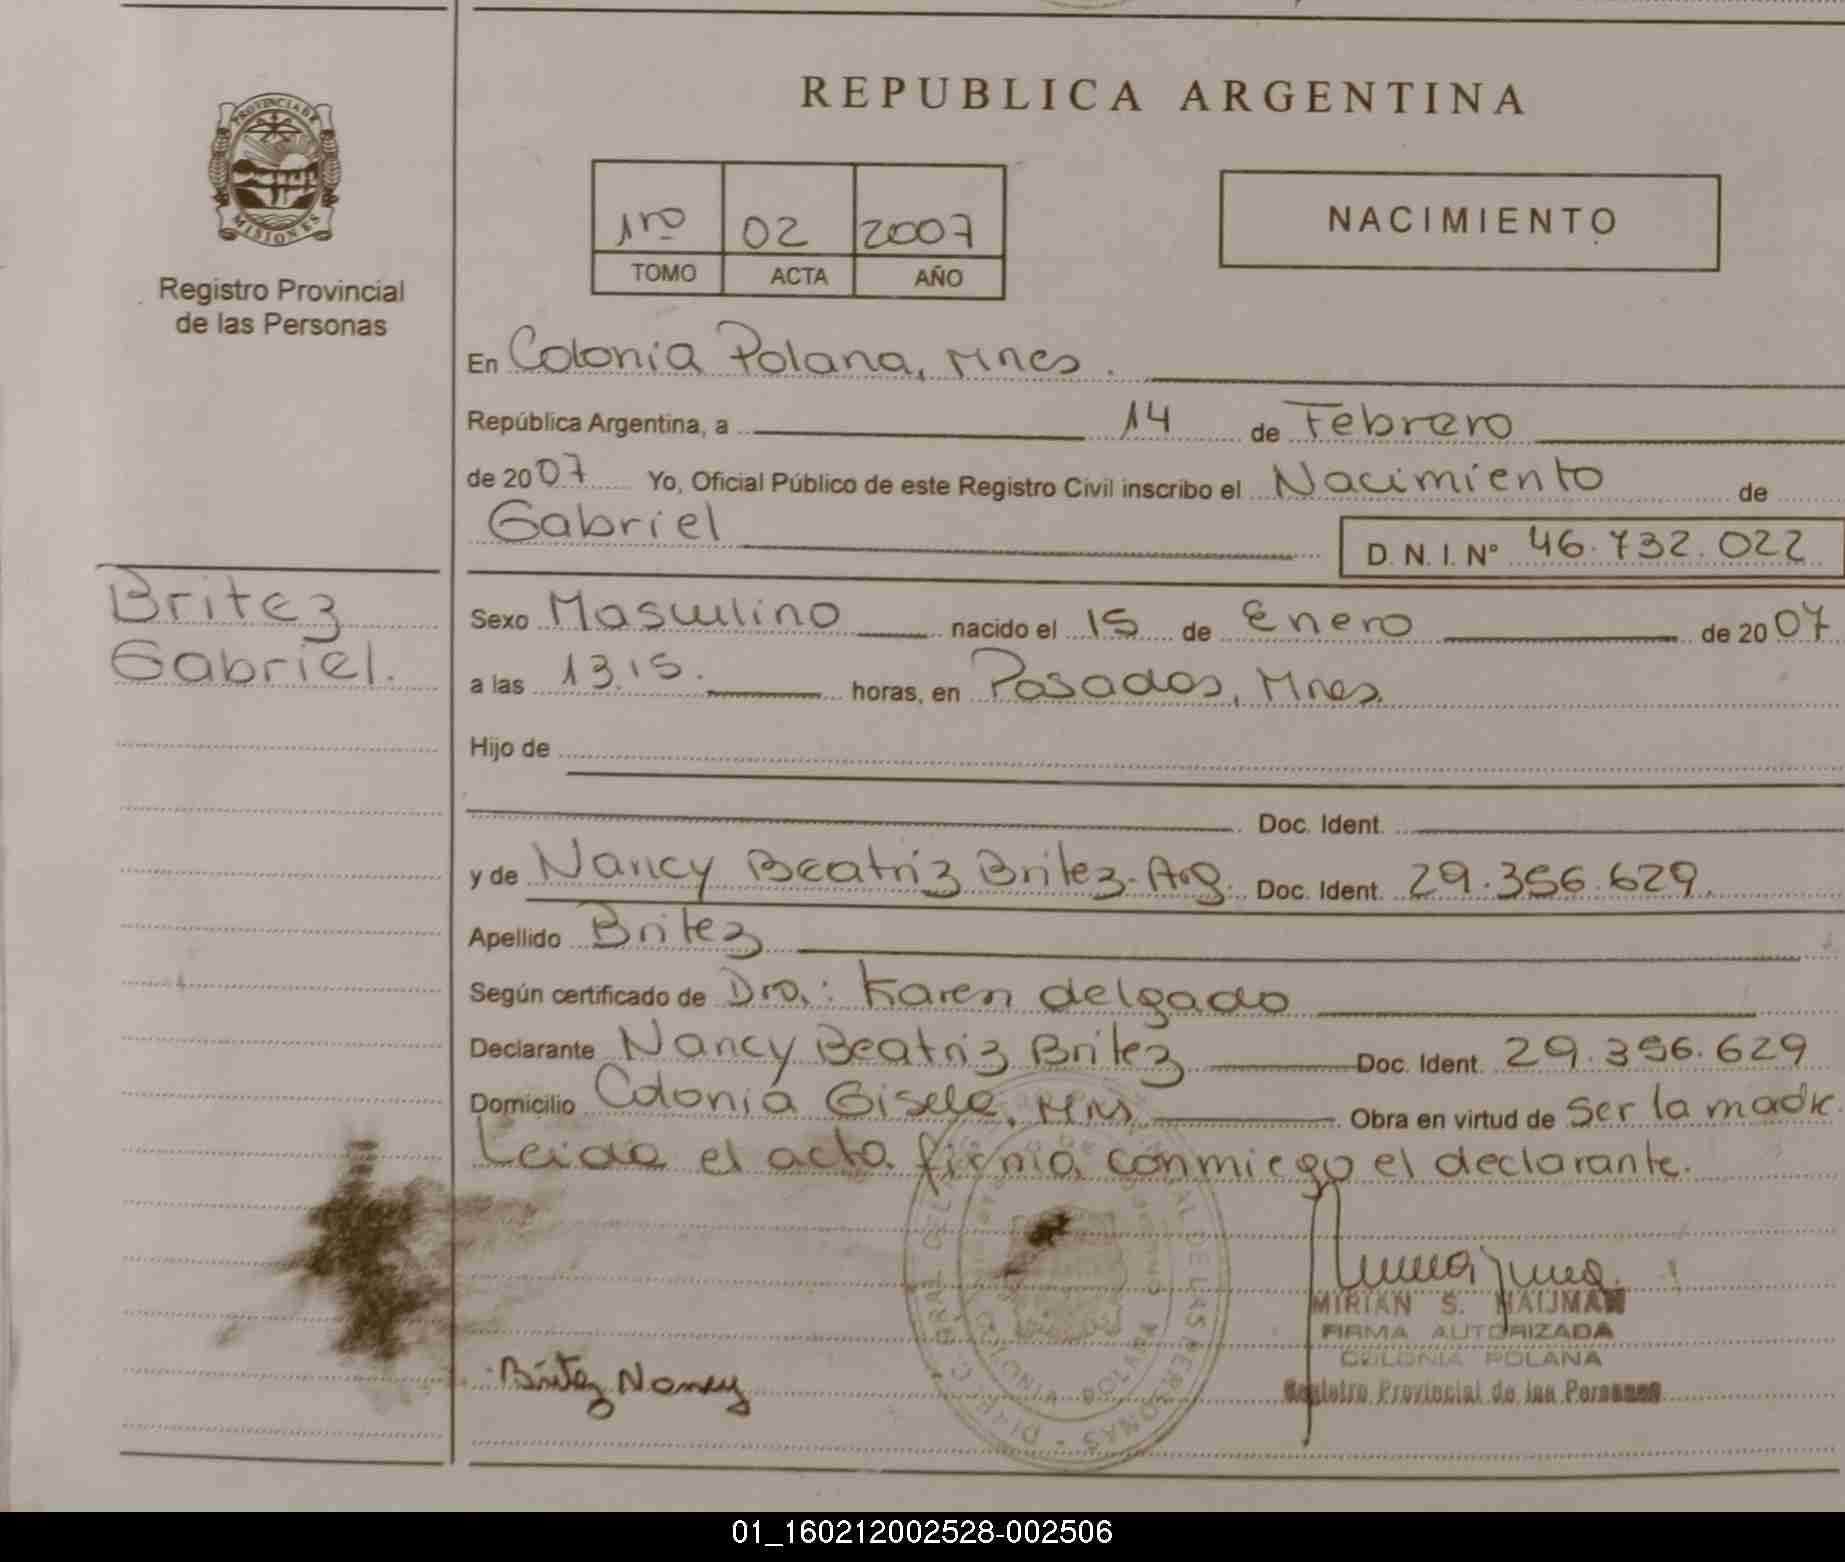 REPUBLICA ARGENTINA
PROVINCIA DE
MISIONES
Registro Provincial
de las Personas
1ro 02 2007
TOMO ACTA AÑO
NACIMIENTO
En Colonia Polana, Mnes.
República Argentina, a 14 de Febrero
de 2007 Yo, Oficial Público de este Registro Civil inscribo el Nacimiento de
Gabriel D. N. I. Nº 46.732.022
Britez
Gabriel.
Sexo Masculino nacido el 15 de Enero de 2007
a las 13.15. horas, en Posadas, Mnes.
Hijo de
Doc. Ident.
y de Nancy Beatriz Britez. Arg. Doc. Ident. 29.356.629.
Apellido Britez
Según certificado de Dra.: Karen delgado
Declarante Nancy Beatriz Britez Doc. Ident. 29.356.629
Domicilio Colonia Gisela, Mns Obra en virtud de Ser la madre.
Leida el acta firma conmigo el declarante.
MIRIAN S. HAIJMAN
FIRMA AUTORIZADA
COLONIA POLANA
Registro Provincial de las Personas
Britez Nancy
01_160212002528-002506